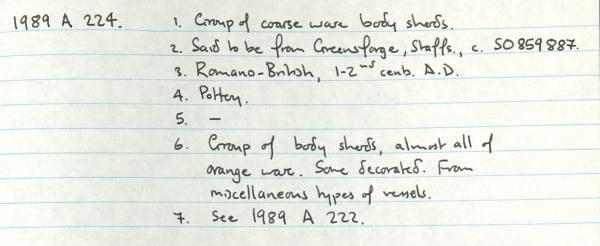 1989 A 224. 1. Group of coarse ware body sherds.
2. Said to be from Greensforge, Staffs., c. SO 859887.
3. Romano-British, 1-2nd cents. A.D.
4. Pottery.
5. —
6. Group of body sherds, almost all of
orange ware. Some decorated. From
miscellaneous types of vessels.
7. See 1989 A 222.